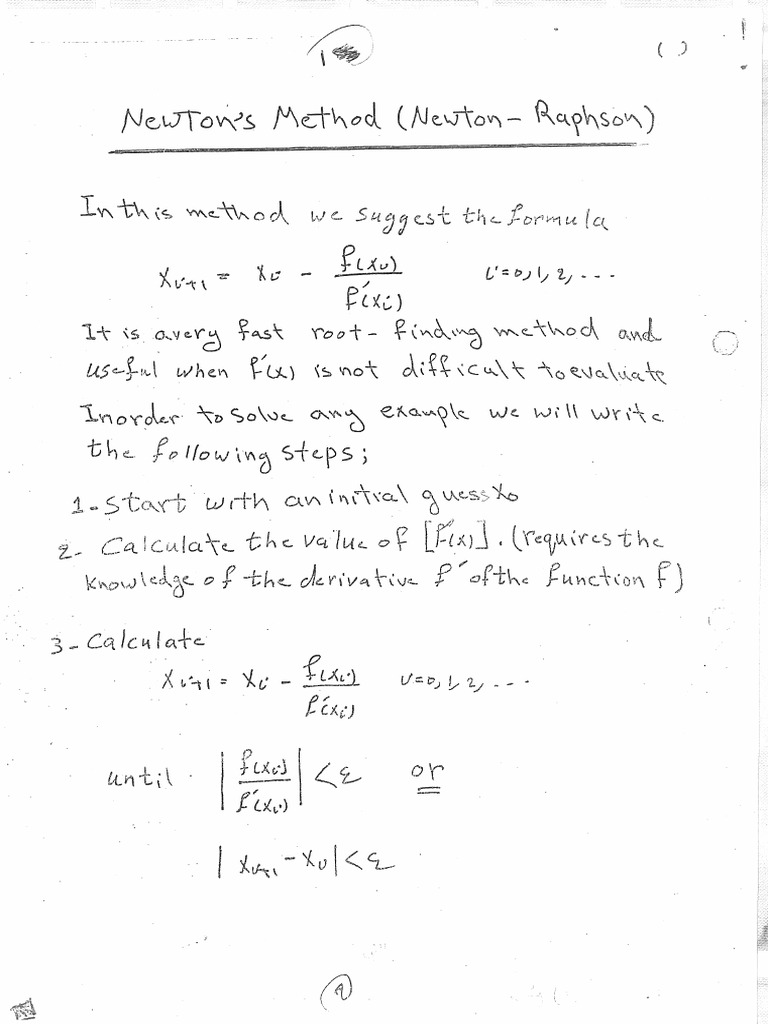 1
( )
Newton's Method (Newton - Raphson)
In this method we suggest the formula
xᵢ₊₁ = xᵢ - f(xᵢ) / f′(xᵢ) i=0,1,2,...
It is a very fast root-finding method and
useful when f′(x) is not difficult to evaluate
Inorder to solve any example we will write
the following steps;
1-Start with an initial guess x₀
2- Calculate the value of [f′(x)]. (requires the
knowledge of the derivative f′ of the function f)
3-Calculate
xᵢ₊₁ = xᵢ - f(xᵢ) / f′(xᵢ) i=0,1,2,...
until |f(xᵢ) / f′(xᵢ)| < ε or
|xᵢ₊₁ - xᵢ| < ε